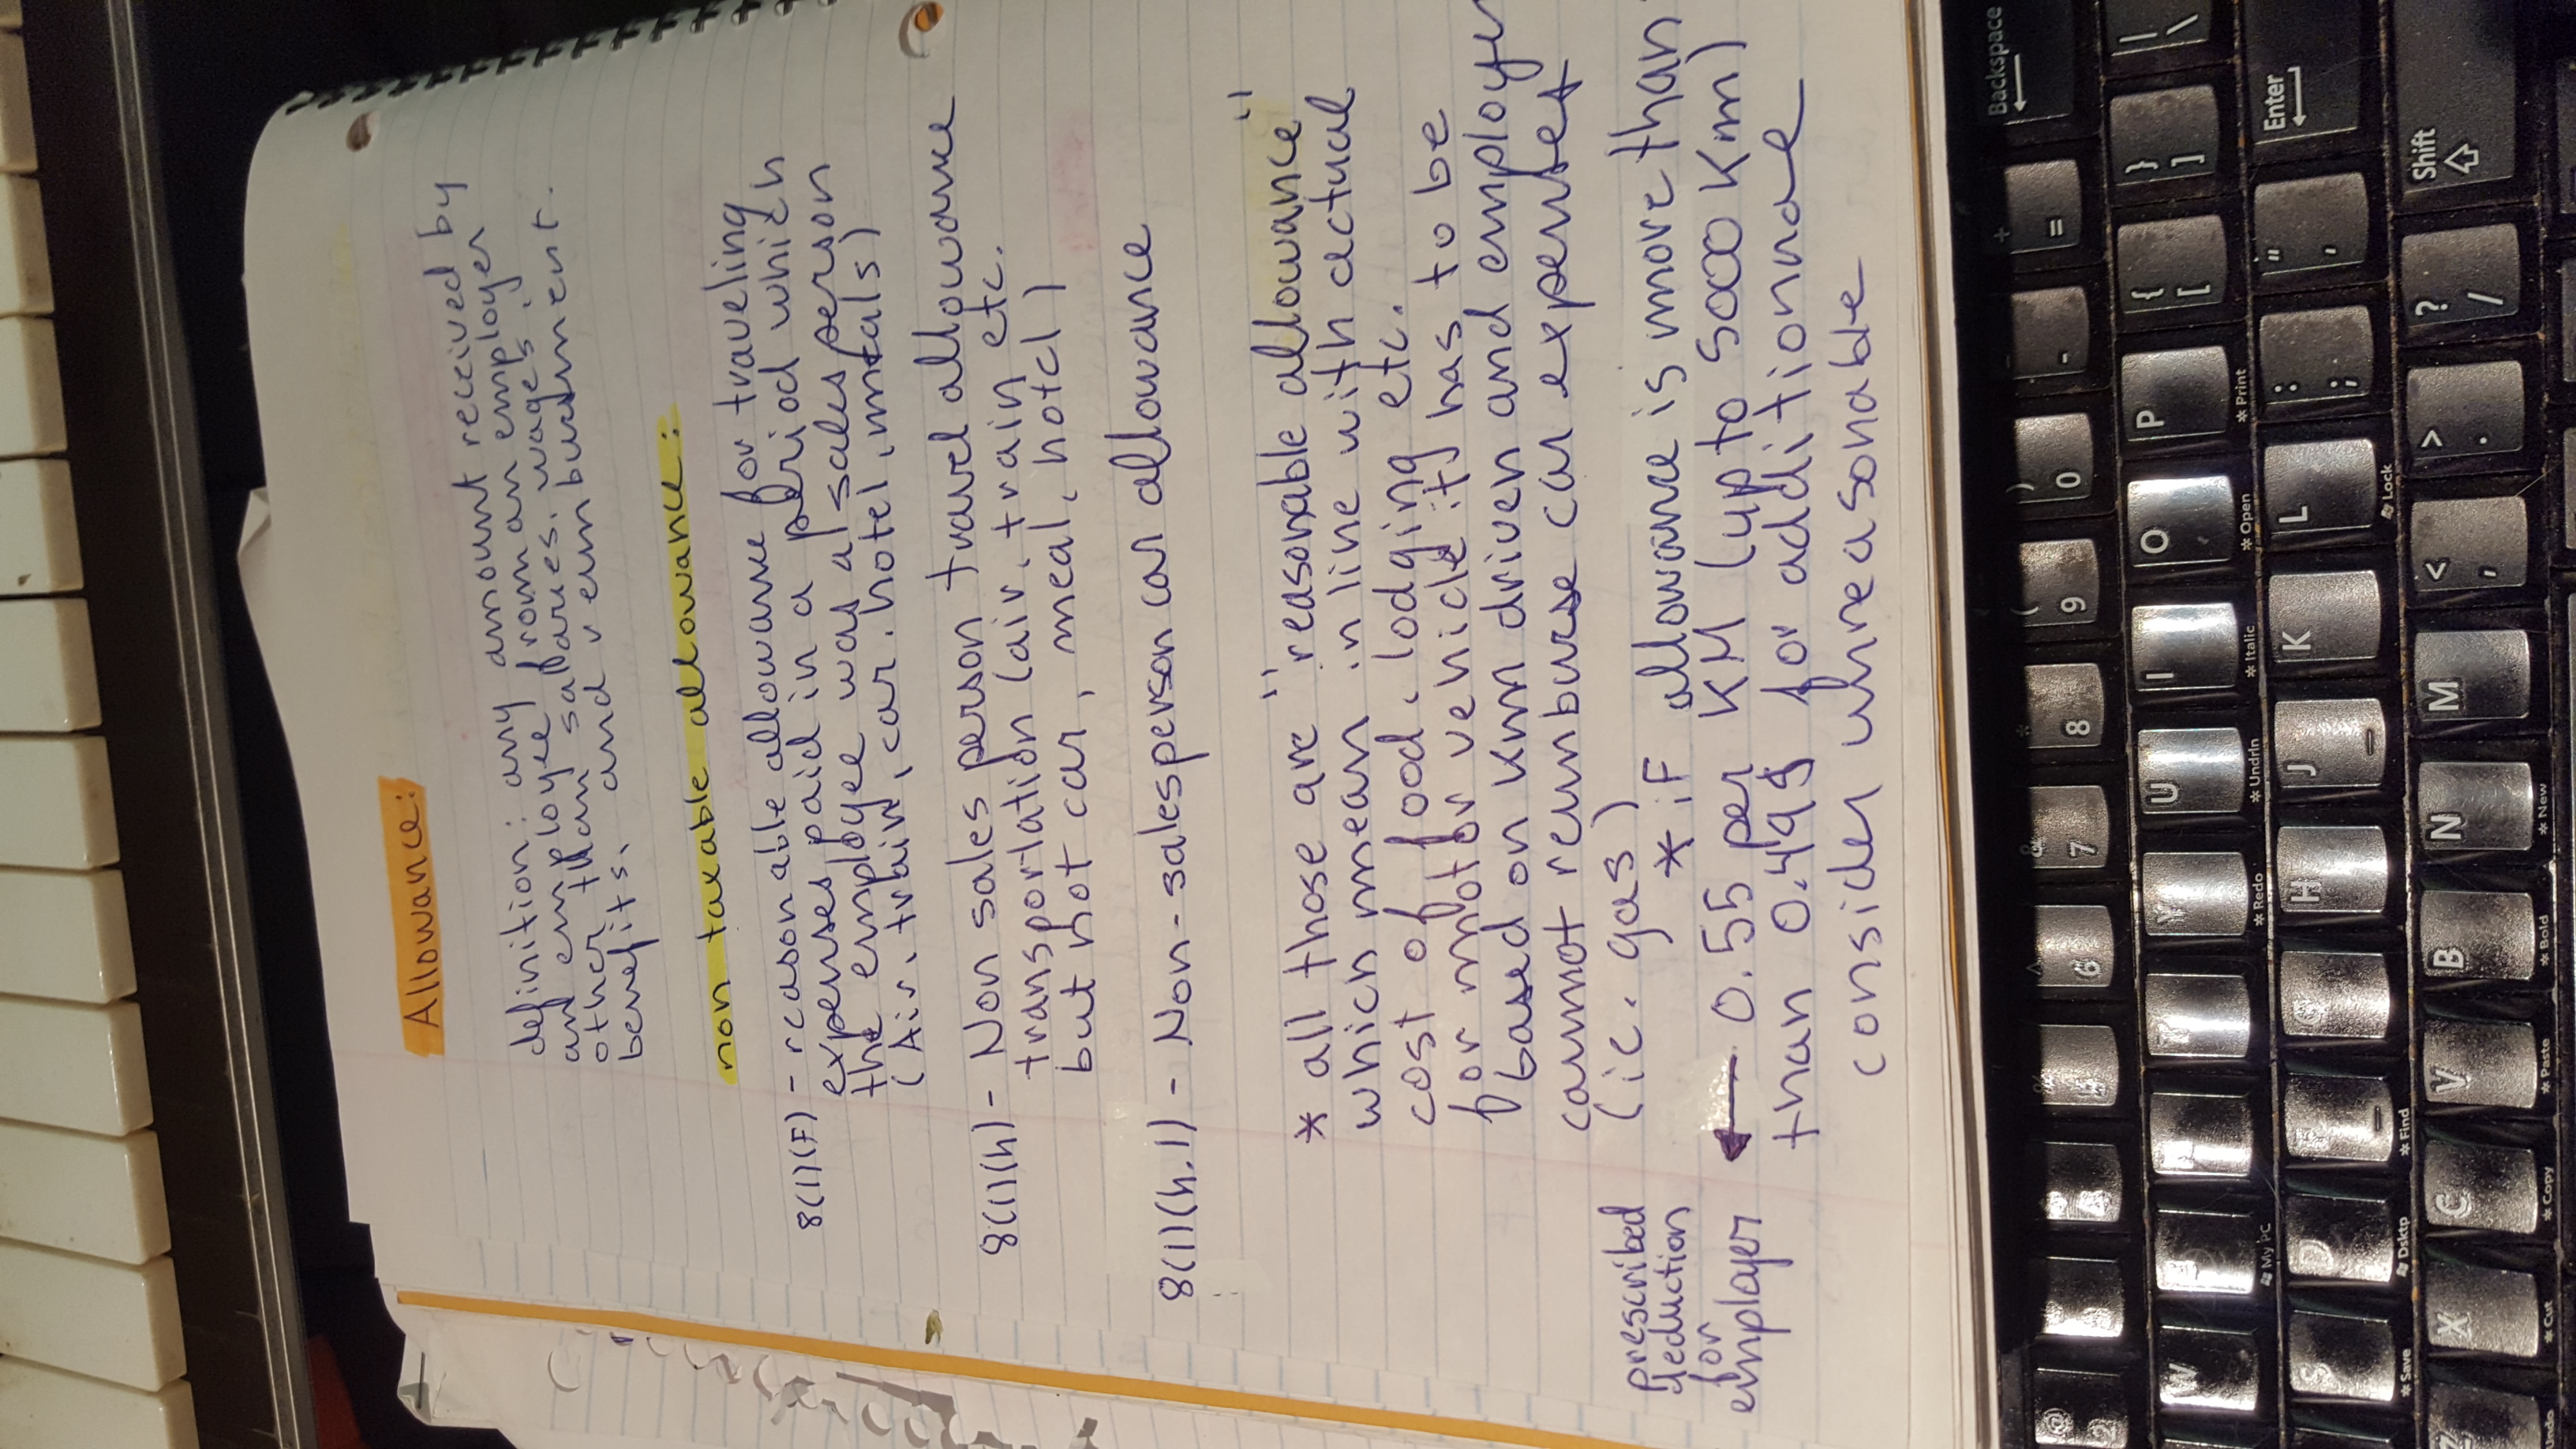 Allowance:
definition: any amount received by
an employee from an employer
other than salaries, wages,
benefits, and reimbursement.
non taxable allowance:
8(1)(F) - reasonable allowance for traveling
expenses paid in a period which
the employee was a sales person
(Air, train, car, hotel, meals)
8(1)(h) - Non sales person travel allowance
transportation (air, train etc.
but not car, meal, hotel)
8(1)(h.1) - Non-salesperson car allowance
* all those are "reasonable allowance"
which mean in line with actual
cost of food, lodging etc.
for motor vehicle: it has to be
based on km driven and employer
cannot reimburse car expenses
(ie. gas)
* iF allowance is more than
prescribed
deduction
for
employer
← 0.55 per KM (up to 5000 Km)
than 0.49$ for additionnale
consider unreasonable
Backspace
+
=
-
)
0
(
9
*
8
&
7
^
6
@
2
|
\
}
]
{
[
P
*Print
O
*Open
I
*Italic
U
*Undrln
*Redo
My PC
W
Enter
"
'
:
;
L
Lock
K
J
H
D
Dsktp
S
*Save
Shift
?
/
>
.
<
,
M
N
*New
B
*Bold
V
*Paste
C
*Copy
X
*Cut
*Find